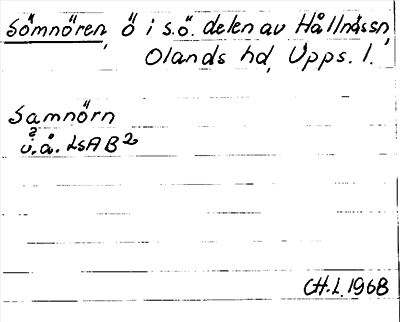 Sömnören, ö i s.ö. delen av Hållnässn,
Olands hd, Upps. l.
Samnörn
u.å. LSA B2
CH.L. 1968